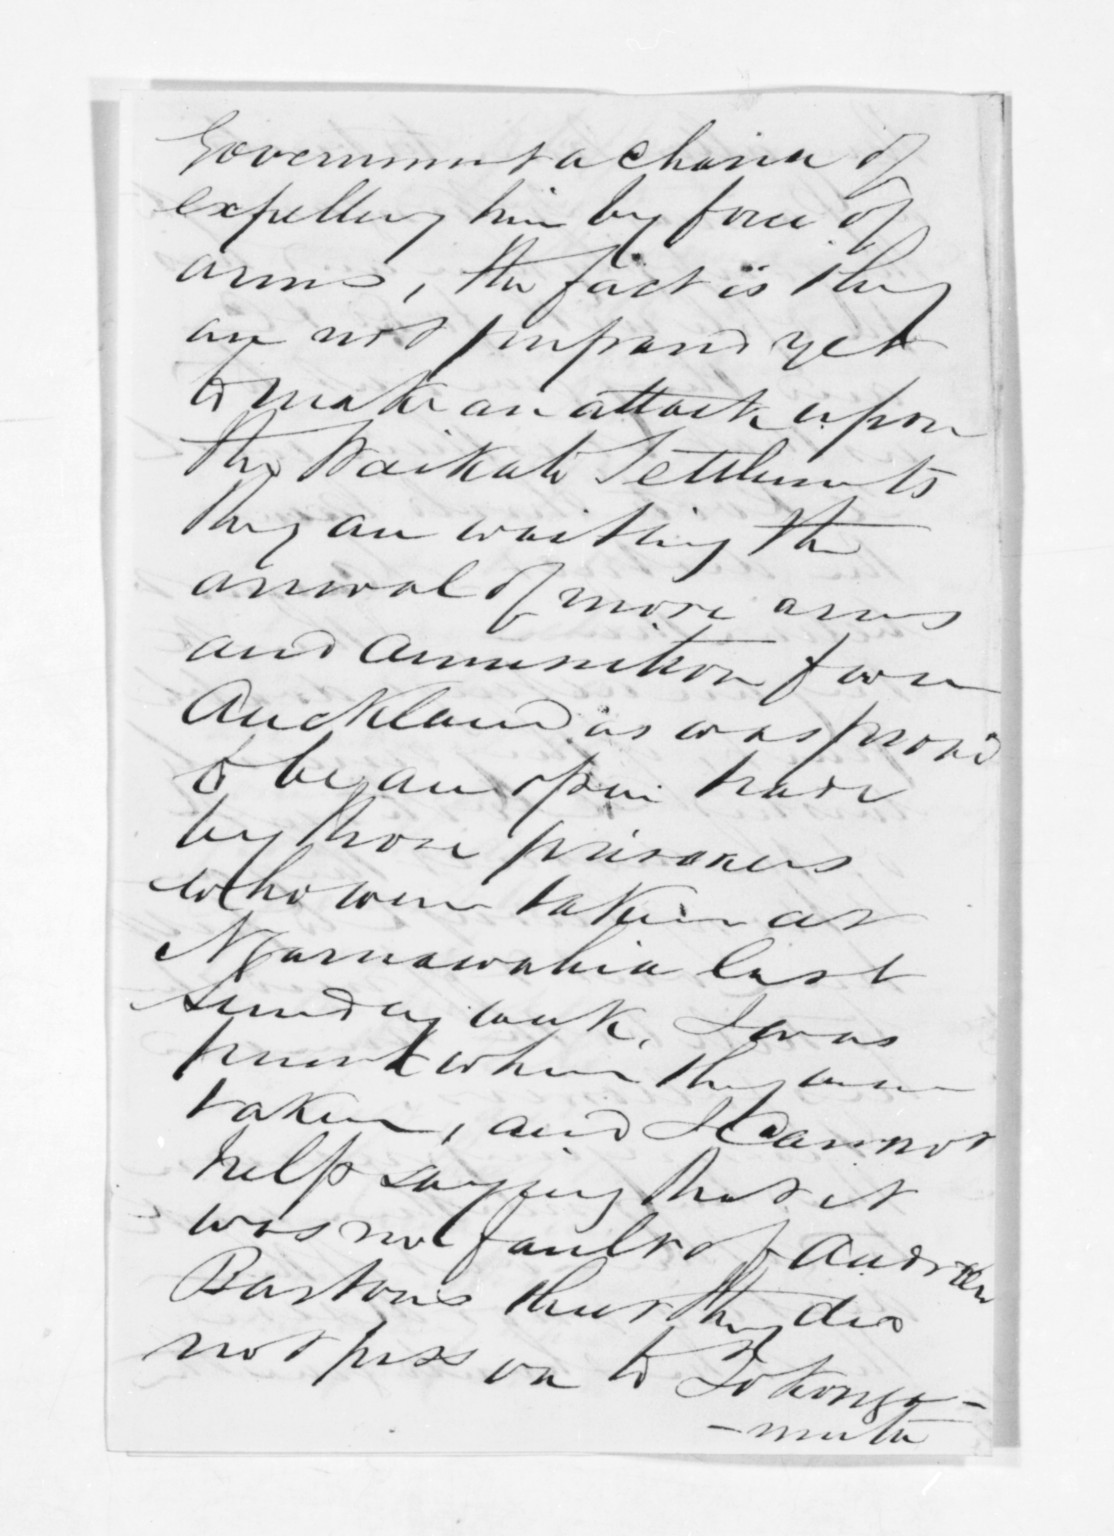 Government a chance of
expelling him by force of
arms, the fact is they
are not prepared yet
to make an attack upon
the Waikato Settlements
they are waiting the
arrival of more arms
and amunition from
Auckland as was proved
to be an open trade
by those prisoners
who were taken at
Ngarnawahia last
Sunday week, I was
present when they were
taken, and I cannot
help saying that it
was not fault of Andrew
Bartons that they did
not pass on to Tokanga-
-muta